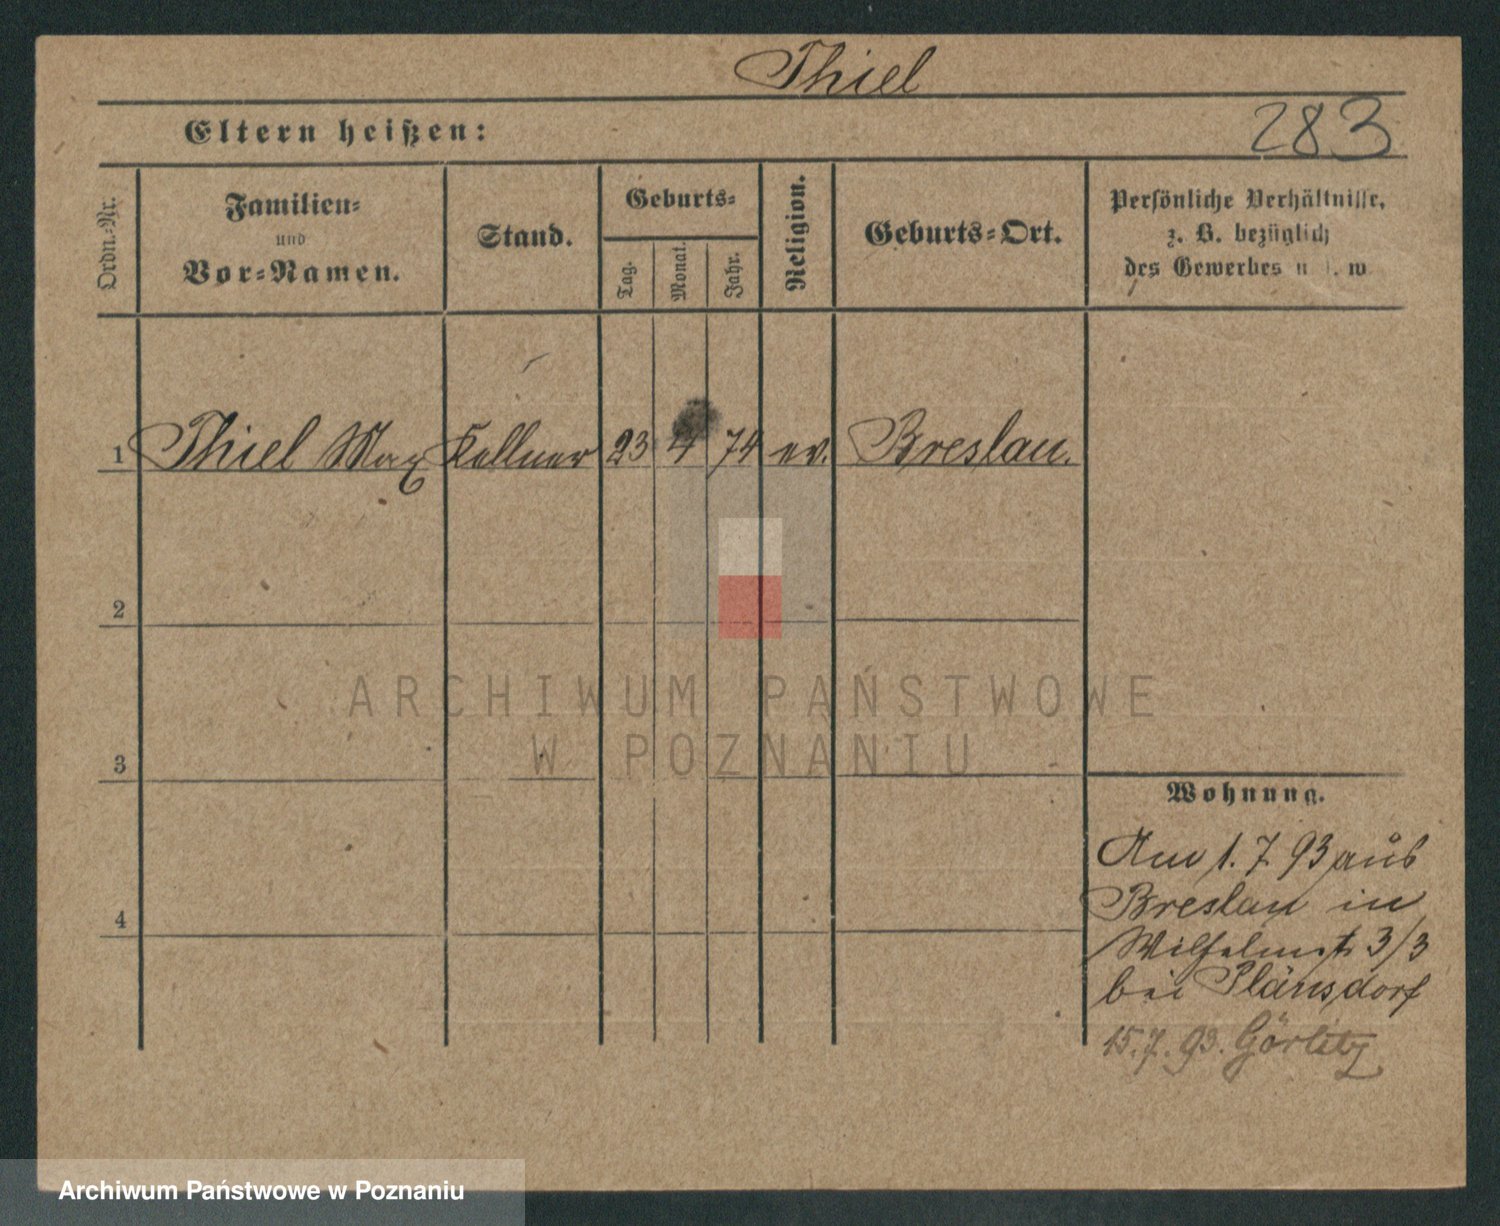 Thiel
Eltern heißen:
283
Ordn.-Nr.
Familien-
und
Vor-Namen.
Stand.
Geburts-
Tag.
Monat.
Jahr.
Religion.
Geburts-Ort.
Persönliche Verhältnisse,
z. B. bezüglich
des Gewerbes u. s. w
1 Thiel Max Kellner 23 4 74 ev. Breslau.
2
3
4
ARCHIWUM PAŃSTWOWE
W POZNANIU
Wohnung.
Am 1. 7. 93 aus
Breslau in
Wilhelmst 3/3
bei
15.7.93. Görlitz
Archiwum Państwowe w Poznaniu